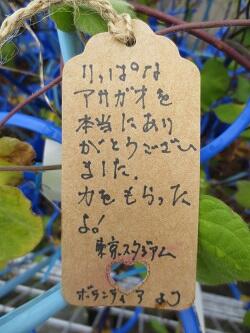 りっぱな
アサガオを
本当にあり
がとうござい
ました。
力をもらった
よ!
東京スタジアム
ボランティアより